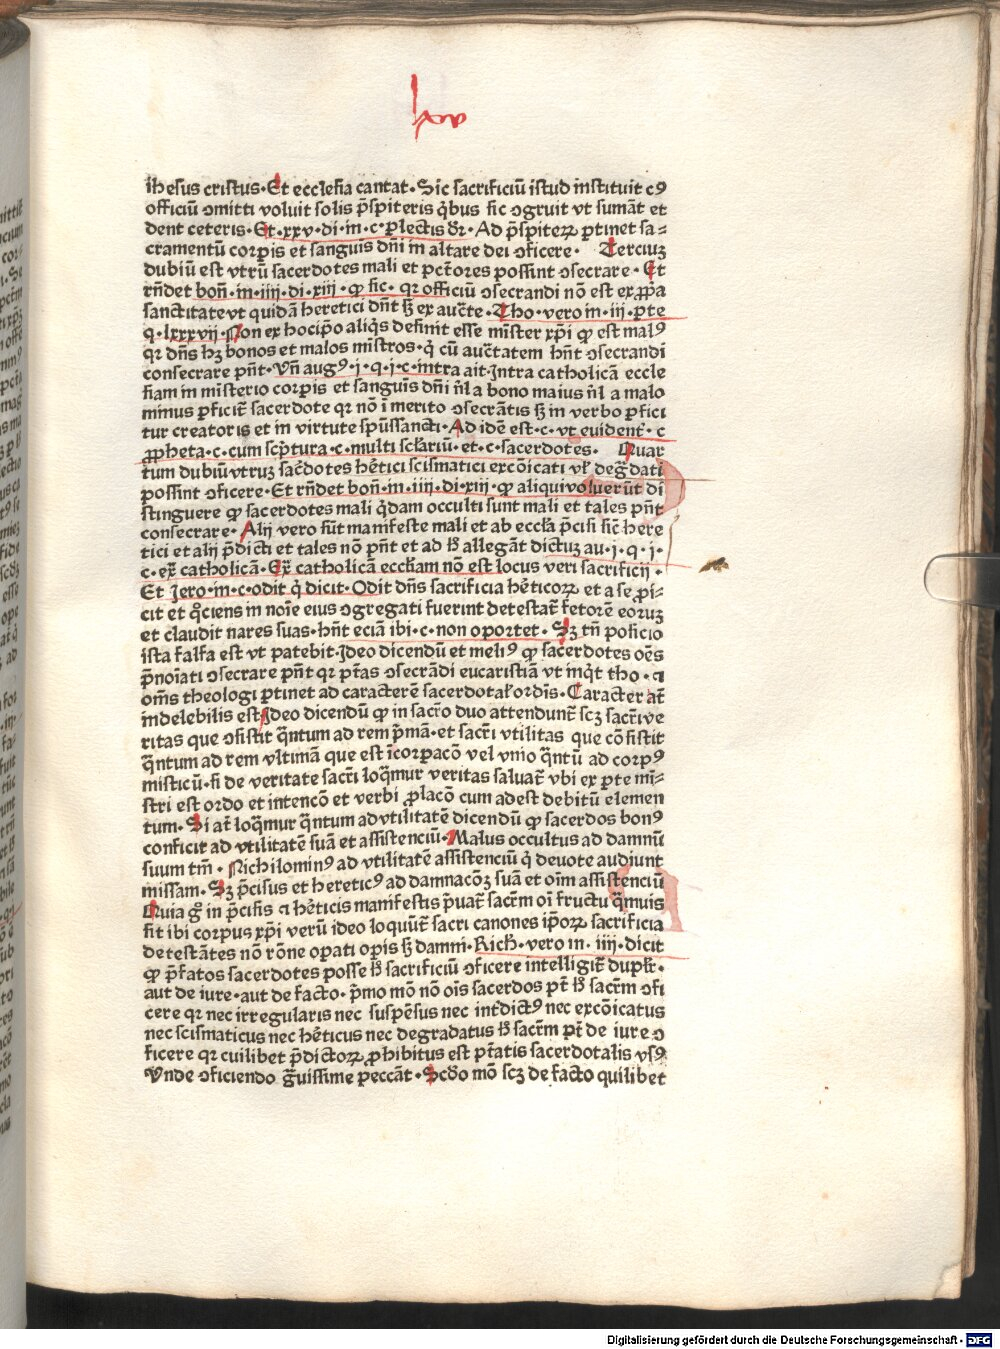 lxv
ihesus cristus·Et ecclesia cantat·Sic sacrificiū istud instituit c9
officiū ɔmitti voluit solis p̄spiteris q̇bus sic ɔgruit vt sumāt et
dent ceteris·Et·xxv·di·in·c·ꝑlectis dr̄·Ad p̄spiteꝝ ꝑtinet sa⸗
cramentū corꝑis et sanguis dn̄i in altare dei ɔficere· Terciuꝫ
dubiū est vtrū sacerdotes mali et pctōres possint ɔsecrare·Et
rn̄det bon̄·in·iiij·di·xiij·ꝙ sic·qr officiū ɔsecrandi nō est ex ꝓp̄a
sanctitate vt quidā heretici dn̄t sꝫ ex auc̄te·Tho·vero in·iii·ꝑte
q·lxxxvij·Non ex hoc ip̄o aliq̇s definit esse mīster xp̄i ꝙ est mal9
qr dn̄s hꝫ bonos et malos mīstros·q̇ cū auc̄tatem hn̄t ɔsecrandi
consecrare pn̄t·Vn̄ aug9·i·q·i·c·intra ait·Intra catholicā eccle
siam in misterio corꝑis et sanguīs dn̄i nl̄ a bono maius nl̄ a malo
minus ꝑficit̄ sacerdote qr nō ī merito ɔsecrātis sꝫ in verbo ꝑfici
tur creatoris et in virtute spūssancti·Ad idē est·c·vt euident̄·c
ꝓpheta·c·cum scp̄tura·c·multi scl̄ariū·et·c·sacerdotes· Quar
tum dubiū vtruꝫ sac̄dotes hētici scismatici excōicati vl̄ deg̃dati
possint ɔficere·Et rn̄det bon̄·in·iiij·di·xiij·ꝙ aliqui voluerūt di
stinguere ꝙ sacerdotes mali q̇dam occulti sunt mali et tales pn̄t
consecrare·Alij vero sūt manifeste mali et ab eccl̄ia p̄cisi sic̄ here
tici et alij p̄dicti et tales nō pn̄t et ad h̄ allegāt dictuꝫ au·i·q·i·
c·ex̄ catholicā·Ex̄ catholicā eccl̄iam nō est locus veri sacrificij·
Et Jero·in·c·odit q̇ dicit·Odit dn̄s sacrificia hēticoꝝ et a se ꝓi⸗
cit et q̊ciens in noīe eius ɔgregati fuerint detestat̄ fetorē eoruꝫ
et claudit nares suas·hn̄t eciā ibi·c·non oportet·Sꝫ tn̄ posicio
ista falsa est vt patebit·Ideo dicendū et meli9 ꝙ sacerdotes oēs
p̄noīati ɔsecrare pn̄t qr ptās ɔsecrādi eucaristiā vt inq̇t tho·⁊
oms̄ theologi ꝑtinet ad caracterē sacerdotal̄ ordīs·Caracter at̄
indelebilis est·Ideo dicendū ꝙ in sacr̄o duo attendunt̄ scꝫ sacr̄i ve
ritas que ɔsistit q̄ntum ad rem p̄mā·et sacr̄i vtilitas que cōsistit
q̄ntum ad rem vltimā que est īcorpacō vel vnio q̄ntū ad corp9
misticū·si de veritate sacr̄i loq̄mur veritas saluat̄ vbi ex ꝑte mī⸗
stri est ordo et intencō et verbi ꝓlacō cum adest debitū elemen
tum·Si at̄ loq̄mur q̄ntum ad vtilitatē dicendū ꝙ sacerdos bon9
conficit ad vtilitatē suā et assistenciū·Malus occultus ad damnū
suum tm̄·Nichilomin9 ad vtilitatē assistenciū q̇ deuote audiunt
missam·Sꝫ p̄cisus et heretic9 ad damnacōꝫ suā et oīm assistenciū
Quia g̊ in p̄cisis ⁊ hēticis manifestis p̄uat̄ sacrm̄ oī fructu q̄muis
sit ibi corpus xp̄i verū ideo loquūt̄ sacri canones ip̄oꝝ sacrificia
detestātes nō rōne oꝑati oꝑis sꝫ damni·Rich·vero in·iiij·dicit
ꝙ p̄fatos sacerdotes posse h̄ sacrificiū ɔficere intelligit̄ dupl̄r·
aut de iure·aut de facto·p̄mo mō nō oīs sacerdos pt̄ h̄ sacrm̄ ɔfi
cere qr nec irregularis nec suspēsus nec int̄dict9 nec excōicatus
nec scismaticus nec hēticus nec degradatus h̄ sacrm̄ pt̄ de iure ɔ
ficere qr cuilibet p̄dictoꝝ ꝓhibitus est ptātis sacerdotalis vs9
Vnde ɔficiendo g̃uissime peccāt·Scd̄o mō scꝫ de facto quilibet
Digitalisierung gefördert durch die Deutsche Forschungsgemeinschaft - DFG